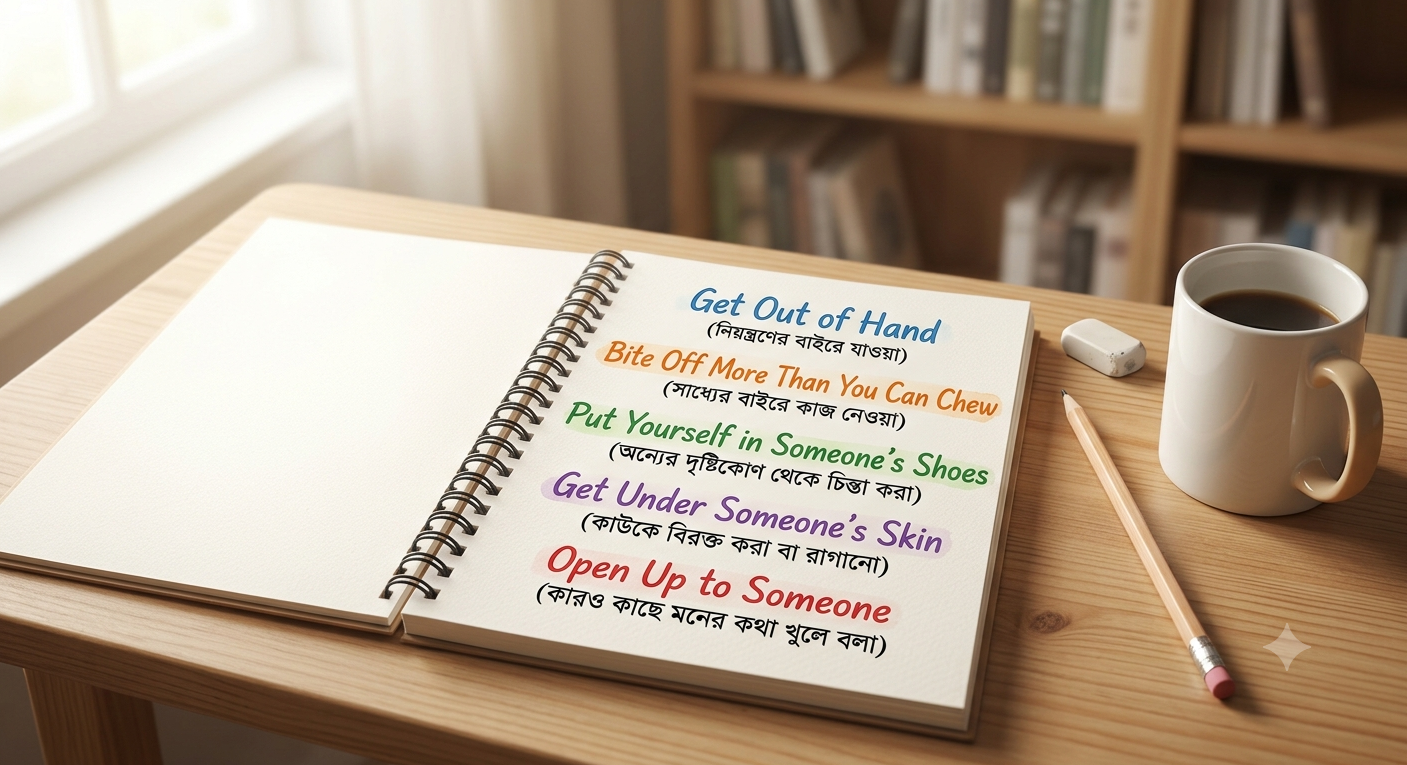 Get Out of Hand
(নিয়ন্ত্রণের বাইরে যাওয়া)
Bite Off More Than You Can Chew
(সাধ্যের বাইরে কাজ নেওয়া)
Put Yourself in Someone's Shoes
(অন্যের দৃষ্টিকোণ থেকে চিন্তা করা)
Get Under Someone's Skin
(কাউকে বিরক্ত করা বা রাগানো)
Open Up to Someone
(কারও কাছে মনের কথা খুলে বলা)